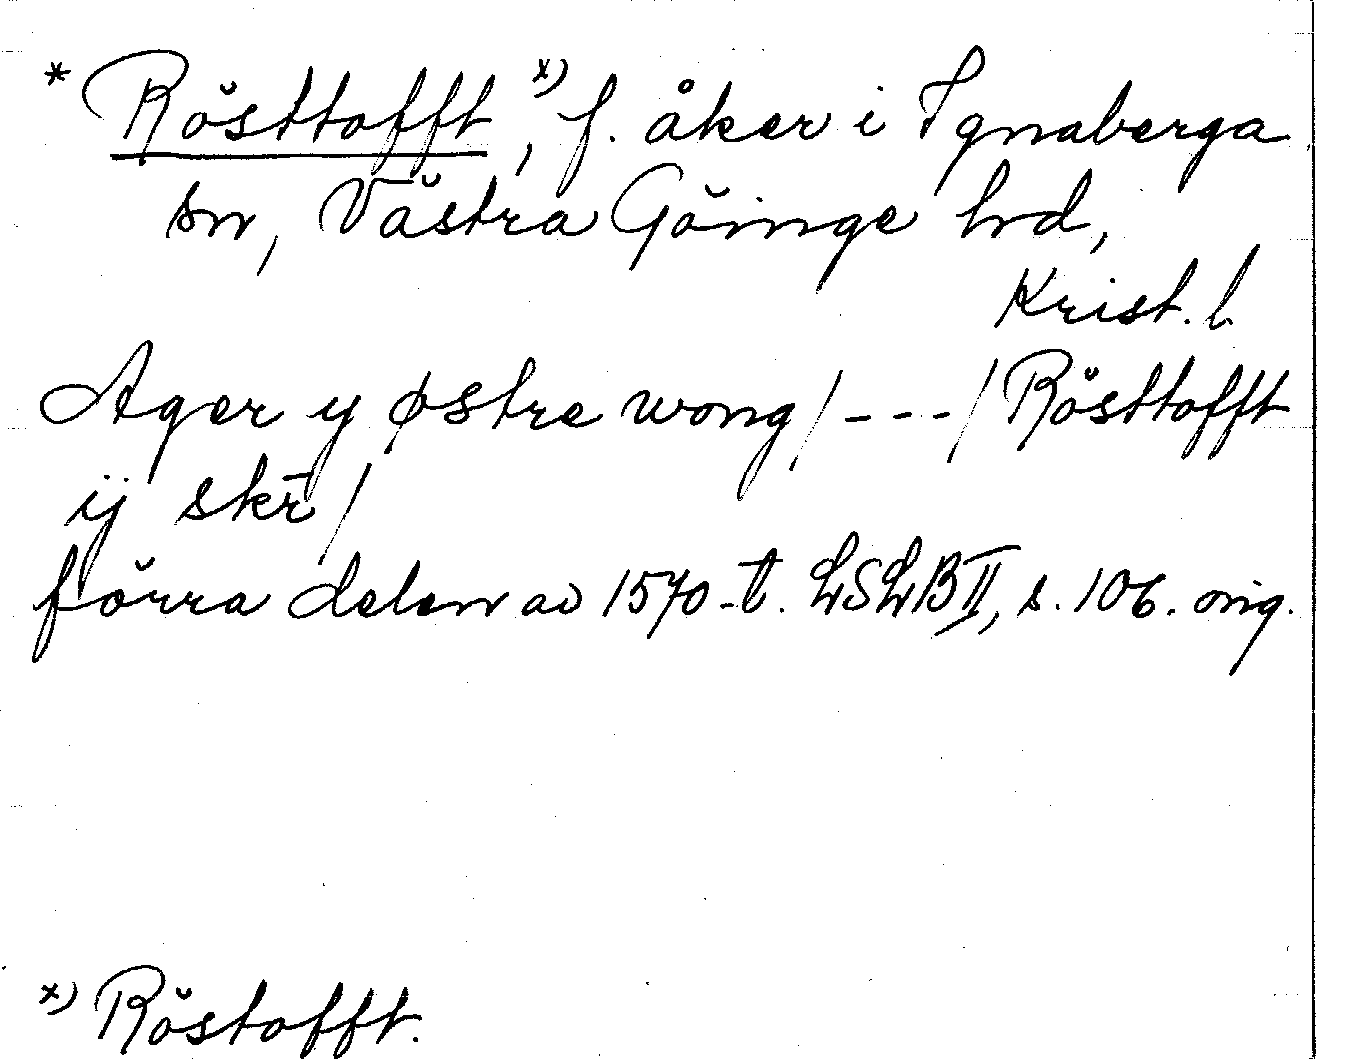 * Rösttofft, x) f. åker i Ignaberga
sn, Västra Göinge hrd,
Krist. l.
Ager y østre wong / - - - / Rösttofft
ij skr̄ /
förra delen av 1570-t. LSLB II, s. 106. orig.
x) Röstofft.